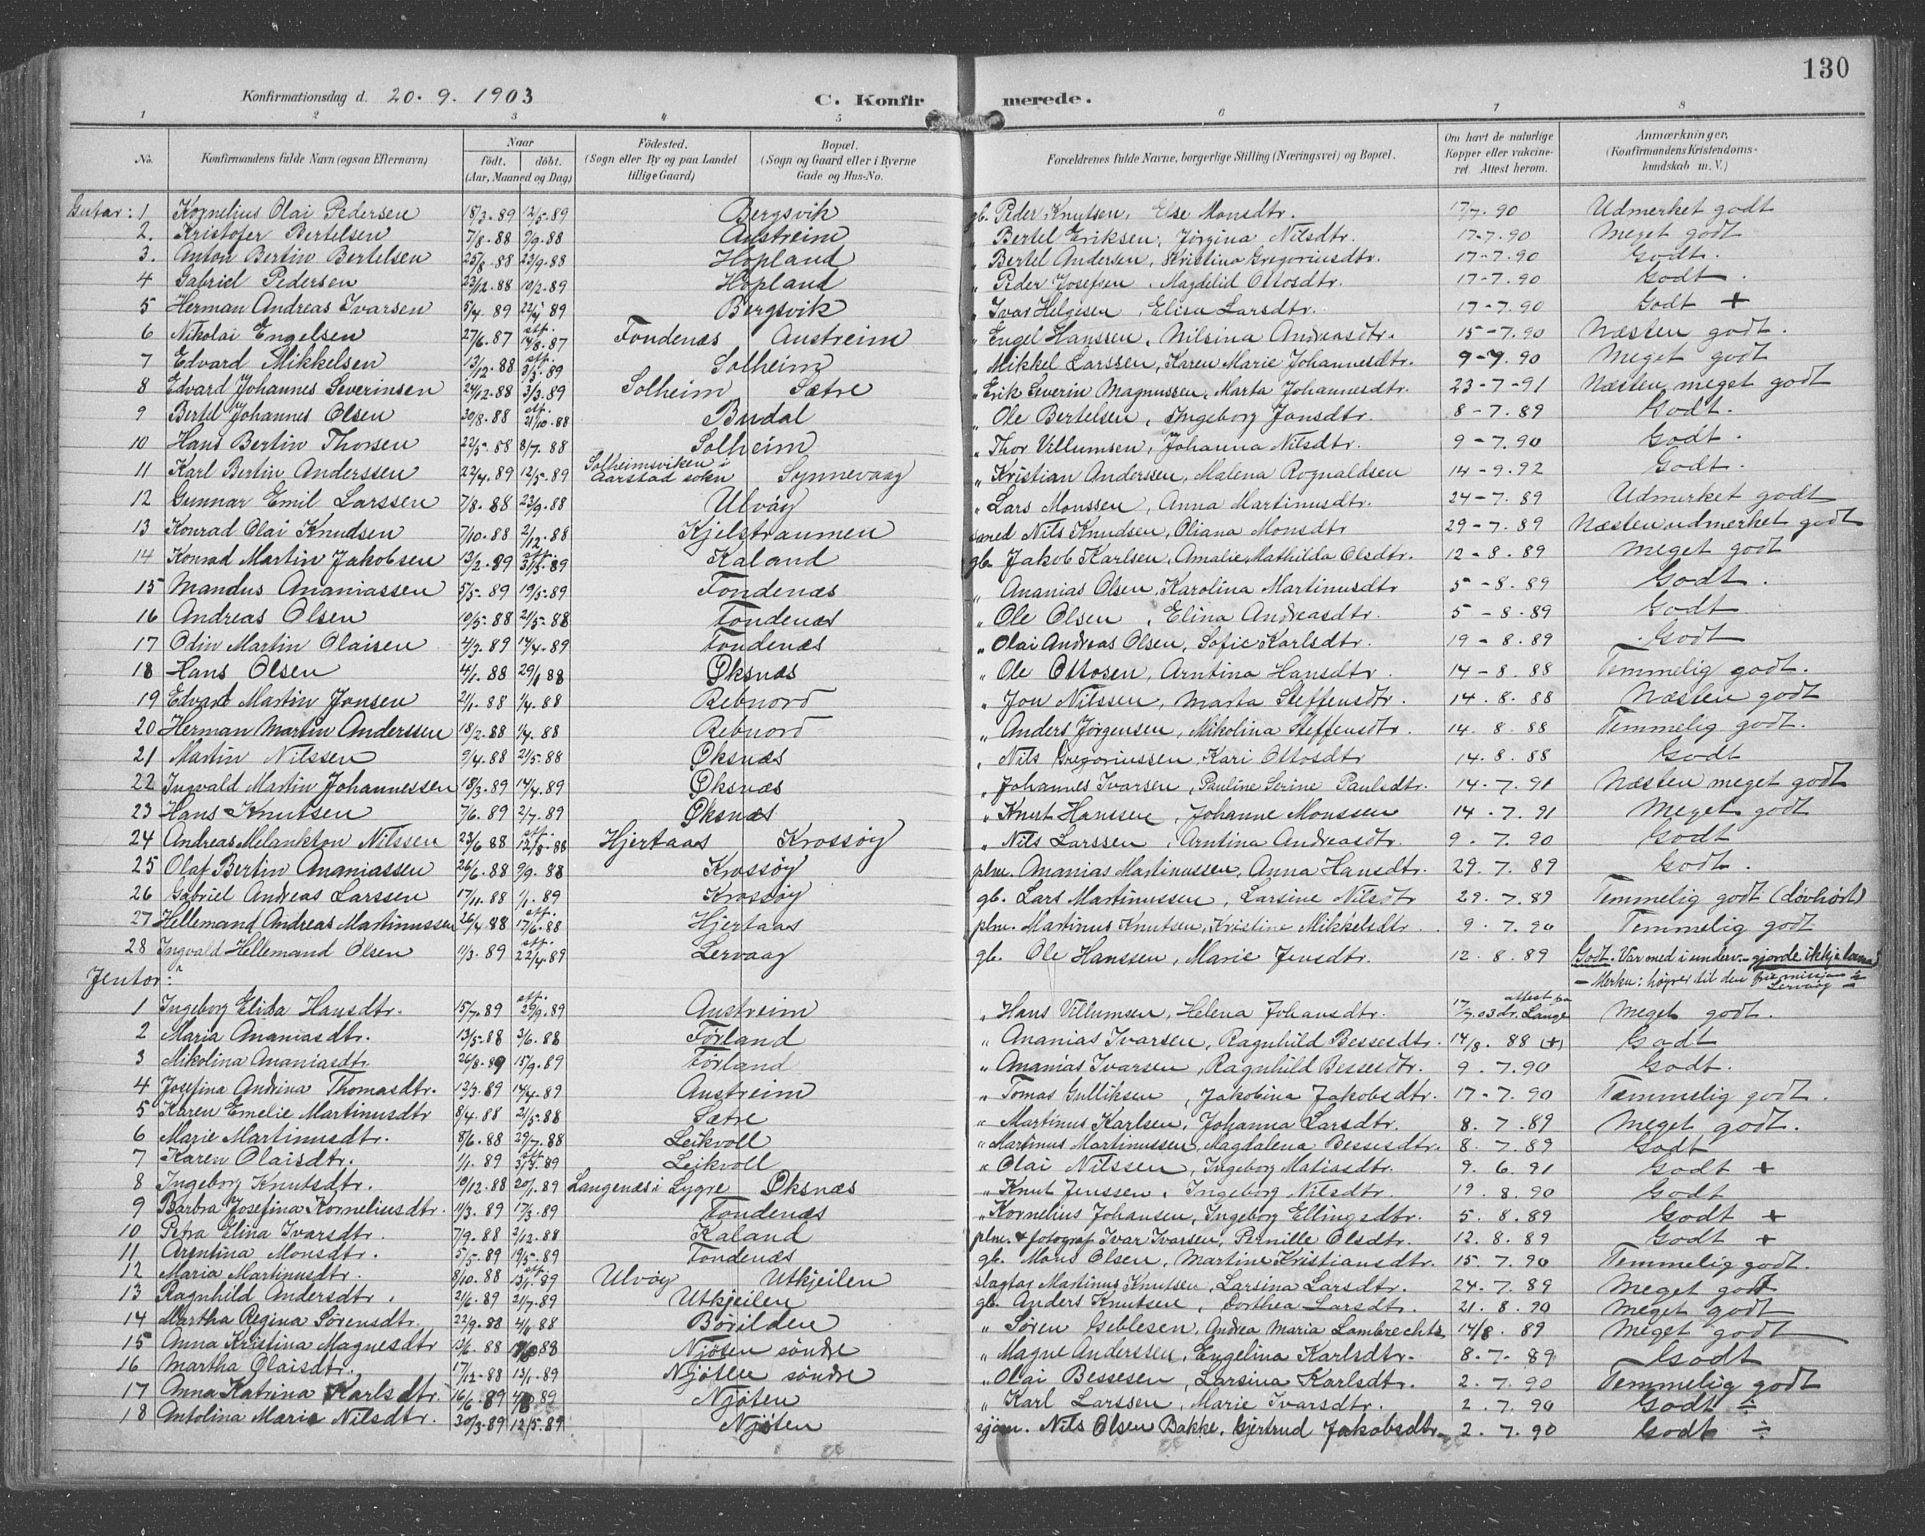 130
Konfirmationsdag d. 20. 9. 1903 C. Konfirmerede.
1 2 3 4 5 6 7 8
No. Konfirmandens fulde Navn (ogsaa Efternavn) Naar født. døbt. (Aar, Maaned og Dag) Fødested. (Sogn eller By og paa Landet tillige Gaard) Bopæl. (Sogn og Gaard eller i Byerne Gade og Hus-No. Forældrenes fulde Navne, borgerlige Stilling (Næringsvei) og Bopæl. Om havt de naturlige Kopper eller vakcineret. Attest herom. Anmærkninger, (Konfirmandens Kristendomskundskab m. V.)
Gutar: 1 Kornelius Olai Pedersen 18/3-89 12/5-89 Bergsvik gb. Peder Knutsen, Else Monsdtr. 17/7. 90 Udmerket godt
2. Kristofer Bertelsen 7/8-88 9/9-88 Austreim " Bertel Eriksen, Jørgina Nilsdtr. 17-7.90 Meget godt
3. Anton Bertin Bertelsen 25/8-88 23/9-88 Hopland " Bertel Andersen, Kristina Gregoriusdtr. 17-7.90 Godt.
4 Gabriel Pedersen 22/12-88 10/2-89 Hopland " Peder Josefsen, Magdelid Ottosdtr. 17-7.90 Godt.
5 Herman Andreas Ivarsen 5/4. 89 22/4-89 Bergsvik " Ivar Helgesen, Elisa Larsdtr. 17-7.90 Godt +
6 Nikolai Engelsen 27/6-87 att. 14/8-87 Fondenæs Austreim " Engel Hanssen, Nilsina Andreasdtr. 15-7.90 Næsten godt.
7 Edvard Mikkelsen 13/12-88 att. 3/3-89 Solheim " Mikkel Larssen, Karen Marie Johannesdtr. 9-7.90 Meget godt
8 Edvard Johannes Severinsen 24/12-88 3/3-89 Solheim Sætre " Erik Severin Magnussen, Marta Johannesdtr. 23-7-91 Næsten meget godt
9 Bertel Johannes Olsen 30/8-88 att. 21/10-88 Burdal " Ole Bertelsen, Ingeborg Jonsdtr. 8-7.89 Godt.
10 Hans Bertin Thorsen 22/5-88 8/7-88 Solheim " Thor Villumsen, Johanna Nilsdtr. 9-7.90 Godt.
11 Karl Bertin Anderssen 22/4-89 12/5-89 Solheimsviken i Aarstad sokn Synnevaag " Kristian Andersen, Malena Rognaldsen 14-9.92 Godt.
12 Gunnar Emil Larssen 7/8-88 23/9-88 Ulvøy " Lars Monssen, Anna Martinusdtr. 24-7.89 Udmerket godt
13 Konrad Olai Knudsen 7/10-88 2/12-88 Kjelstraumen Nils Knudsen, Oliana Monsdtr. 29-7.89 Næsten udmerket godt
14 Konrad Martin Jakobsen 13/2-89 att. 31/3-89 Kaland gb. Jakob Karlsen, Amalie Mathilda Olsdtr. 12-8.89 Meget godt
15 Mandus Ananiassen 5/5-89 19/5-89 Fondenæs " Ananias Olsen, Karolina Martinusdtr 5-8.89 Godt.
16 Andreas Olsen 10/5-88 21/5-88 Fondenæs " Ole Olsen, Elina Andreasdtr. 5-8.89 Godt
17 Odin Martin Olaisen 4/3-89 14/4-89 Fondenæs " Olai Andreas Olsen, Sofie Karlsdtr. 19-8.89 Godt
18 Hans Olsen 4/1. 88 29/1 88 Øksnæs " Ole Ottosen, Arntina Hansdtr. 14-8.88 Temmelig godt.
19 Edvart Martin Jonsen 2/1. 88 1/4. 88 Rebnord " Jon Nilssen, Marta Steffensdtr. 14.8.88 Næsten godt
20 Herman Martin Anderssen 18/2-88 1/4. 88 Rebnord " Anders Jørgensen, Mikolina Steffensdtr. 14.8.88 Temmelig godt.
21 Martin Nilssen 9/4-88 21/5-88 Øksnæs " Nils Gregoriussen, Kari Ottosdtr 14.8.88 Godt
22 Ingvald Martin Johannessen 18/3-89 14/4-89 Øksnæs " Johannes Ivarsen, Pauline Serine Paulsdtr. 14-7.91 Næsten meget godt
23 Hans Knutsen 7/6. 89 2/7-89 Øksnæs " Knut Hanssen, Johanne Monssen 14-7.91 Meget godt
24 Andreas Melankton Nilssen 23/6 88 att. 12/8-88 Hjertaas Krossøy " Nils Larssen, Arntina Andreasdtr. 9.7.90 Godt
25 Olaf Bertin Ananiassen 26/6-88 9/9. 88 Krossøy plm. Ananias Martinussen, Anna Hansdtr. 29.7.89 Godt.
26 Gabriel Andreas Larssen 17/11. 88 1/1. 89 Krossøy gb. Lars Martinussen, Larsine Nilsdtr 29.7.89 Temmelig godt (døvhørt)
27 Hellemand Andreas Martinussen 26/4. 88 att. 17/6-88 Hjertaas plm. Martinus Knutsen, Kristine Mikkelsdtr. 9.7.90 Temmelig godt
28 Ingvald Hellemand Olsen 11/3. 89 att. 22/4-89 Lervaag gb. Ole Hanssen, Marie Jensdtr. 12.8.89 Godt. Var med i underv. - gjorde ikkje
- Merkn: høyrer til den frie missjon i Lervåg -
Jentor:
1 Ingeborg Elida Hansdtr. 15/7. 89 att. 29/9. 89 Austreim " Hans Villumsen, Helena Johansdtr. 17/7.03 attest fra dr. Lange Meget godt.
2 Maria Ananiasdtr. 13/5-88 3/6. 88 Førland " Ananias Ivarsen, Ragnhild Bessesdtr. 14/8. 88 (+) Godt
3 Mikolina Ananiasdtr. 26/8-89 15/9. 89 Førland " Ananias Ivarsen, Ragnhild Bessesdtr. 9.7.90 Godt.
4 Josefina Andrina Thomasdtr. 12/3. 89 14/4-89 Austreim " Tomas Gulliksen, Jakobina Jakobsdtr. 17-7.90 Temmelig godt.
5 Karen Emelie Martinusdtr 8/4. 88 21/5-88 Sætre " Martinus Karlsen, Johanna Larsdtr. 8.7.89 Meget godt.
6 Marie Martinusdtr. 8/6. 88 29/7. 88 Leikvoll " Martinus Martinussen, Magdalena Bessesdtr. 8.7.89 Godt
7 Karen Olaisdtr. 1/1. 89 att. 3/3. 89 Leikvoll " Olai Nilssen, Ingeborg Matisdtr. 9.6.91 Godt +
8 Ingeborg Knutsdtr. 10/12-88 20/1. 89 Langenæs i Lygre Øksnæs " Knut Jenssen, Ingeborg Nilsdtr. 19.8.90 Godt
9 Barbra Josefina Kornelius dtr. 11/3. 89 17/3-89 Fondenæs " Kornelius Johansen, Ingeborg Ellingsdtr. 5.8.89 Godt +
10 Petra Elina Ivarsdtr. 7/9. 88 2/12. 88 Kaland plm. & fotograf Ivar Ivarsen, Pernille Olsdtr. 12.8.89 Godt +
11 Arentina Monsdtr. 5/5-89 19/5-89 Fondenæs gb. Mons Olsen, Martine Kristiansdtr. 15.7.90 Temmelig godt.
12 Maria Martinusdtr. 8/10. 88 att. 13/1 89 Ulvøy Utkjeilen slagtar Martinus Knutsen, Larsina Larsdtr. 24.7.89 Meget godt
13 Ragnhild Andersdtr. 2/6. 89 21/7-89 Utkjeilen gb. Anders Knutsen, Dorthea Larsdtr. 21.8.90 Meget godt
14 Martha Regina Sørensdtr. 22/9-88 4/11 88 Børilden " Søren Geblesen, Andrea Maria Lambrechts 14/8. 89 Meget godt
15 Anna Kristina Magnesdtr 13/6. 88 88 Njøten søndre " Magne Anderssen, Engelina Karlsdtr. 8.7.89 Godt
16 Martha Olaisdtr. 17/12-88 13/1-89 Njøten søndre " Olai Bessesen, Larsina Karlsdtr. 2.7.90 Temmelig godt
17 Anna Katrina Karlsdtr. 16/6. 89 89 Njøten " Karl Larssen, Marie Ivarsdtr. 2.7.90 Godt ÷
18 Antolina Marie Nilsdtr. 30/3-89 12/5-89 Njøten sjøm. Nils Olsen Bakke, Gjertrud Jakobsdtr. 2.7.90 Godt ÷